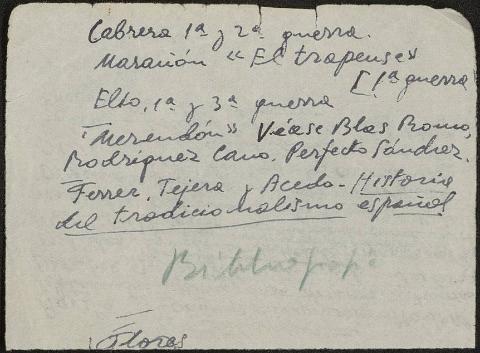 Cabrera 1ª y 2ª guerra.
Marañón "El trapense"
[1ª guerra
Elío, 1ª y 3ª guerra
"Merendón" Véase Blas Romo,
Rodríguez Cano. Perfecto Sánchez.
Ferrer, Tejera y Acedo - Historia
del tradicionalismo español
Flores